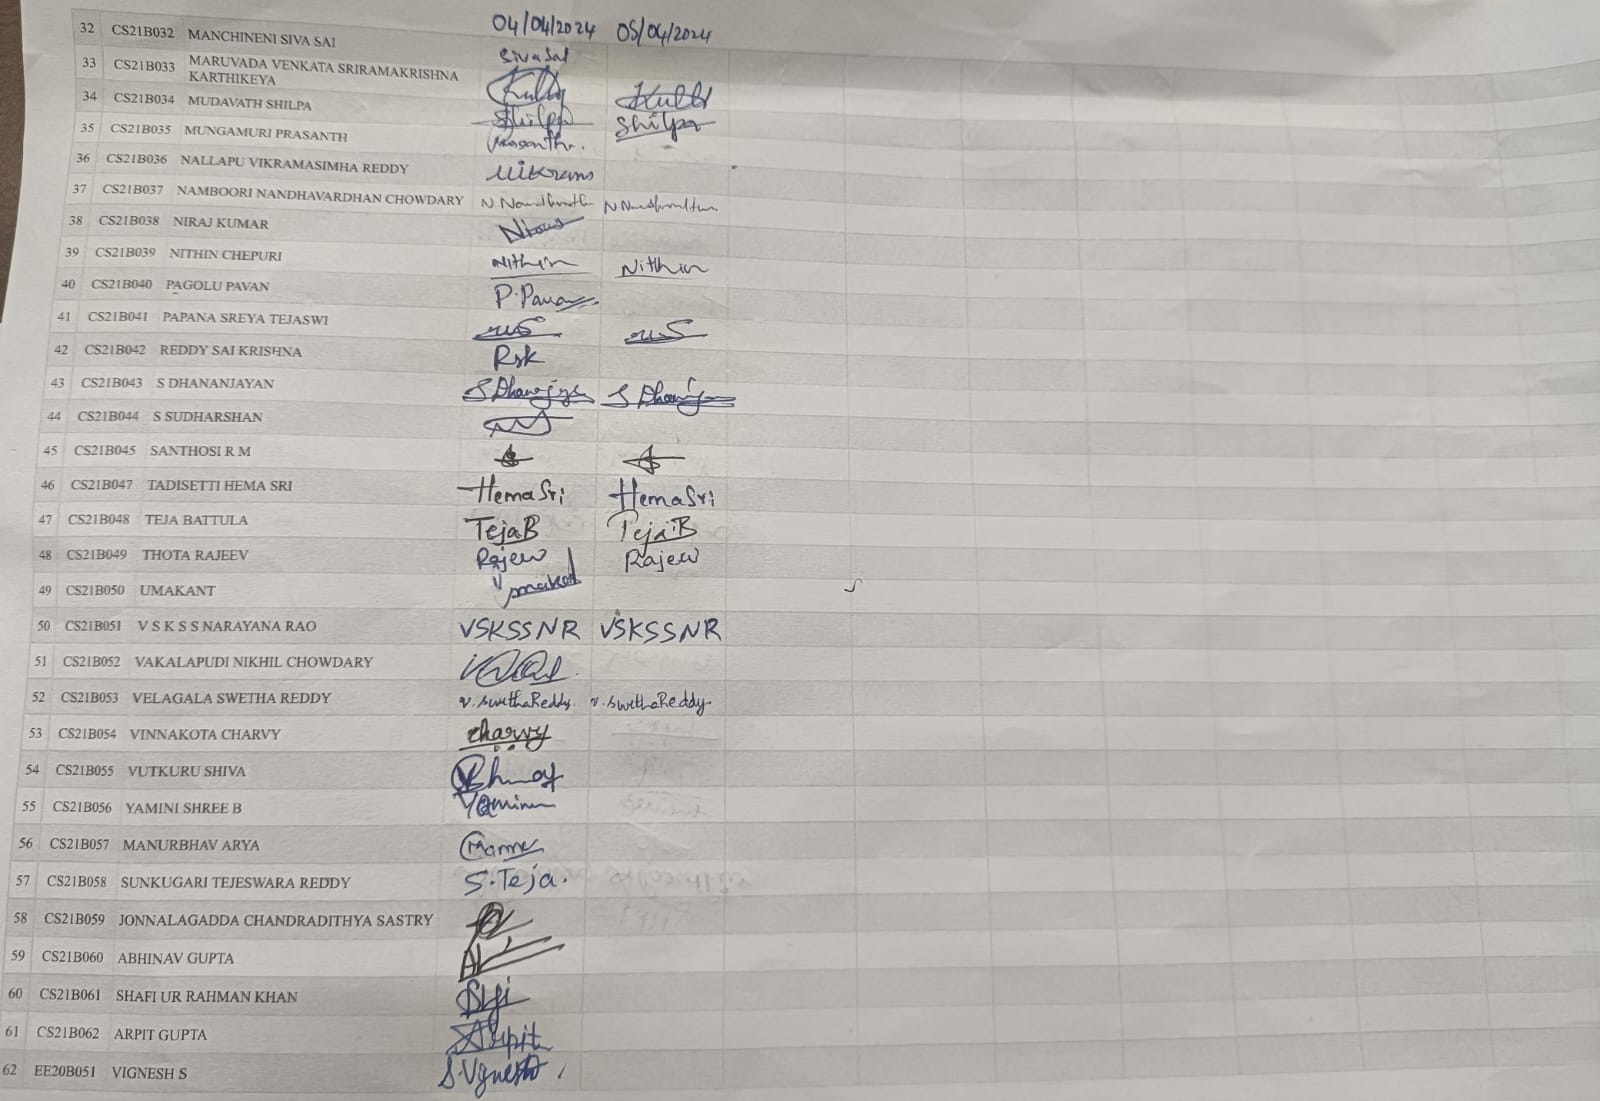 04/04/2024 05/04/2024
32 CS21B032 MANCHINENI SIVA SAI SivaSai
33 CS21B033 MARUVADA VENKATA SRIRAMAKRISHNA
KARTHIKEYA
34 CS21B034 MUDAVATH SHILPA Shilpa Shilpa
35 CS21B035 MUNGAMURI PRASANTH Prasanth.
36 CS21B036 NALLAPU VIKRAMASIMHA REDDY
37 CS21B037 NAMBOORI NANDHAVARDHAN CHOWDARY
38 CS21B038 NIRAJ KUMAR
39 CS21B039 NITHIN CHEPURI Nithin Nithin
40 CS21B040 PAGOLU PAVAN P.Pavan
41 CS21B041 PAPANA SREYA TEJASWI
42 CS21B042 REDDY SAI KRISHNA Rsk
43 CS21B043 S DHANANJAYAN
44 CS21B044 S SUDHARSHAN
45 CS21B045 SANTHOSI R M
46 CS21B047 TADISETTI HEMA SRI HemaSri HemaSri
47 CS21B048 TEJA BATTULA TejaB TejaB
48 CS21B049 THOTA RAJEEV Rajeev Rajeev
49 CS21B050 UMAKANT
50 CS21B051 V S K S S NARAYANA RAO VSKSSNR VSKSSNR
51 CS21B052 VAKALAPUDI NIKHIL CHOWDARY
52 CS21B053 VELAGALA SWETHA REDDY v.SwethaReddy. v.SwethaReddy.
53 CS21B054 VINNAKOTA CHARVY charvy
54 CS21B055 VUTKURU SHIVA
55 CS21B056 YAMINI SHREE B Yamini
56 CS21B057 MANURBHAV ARYA
57 CS21B058 SUNKUGARI TEJESWARA REDDY S.Teja.
58 CS21B059 JONNALAGADDA CHANDRADITHYA SASTRY
59 CS21B060 ABHINAV GUPTA
60 CS21B061 SHAFI UR RAHMAN KHAN
61 CS21B062 ARPIT GUPTA Arpit
62 EE20B051 VIGNESH S S.Vignesh